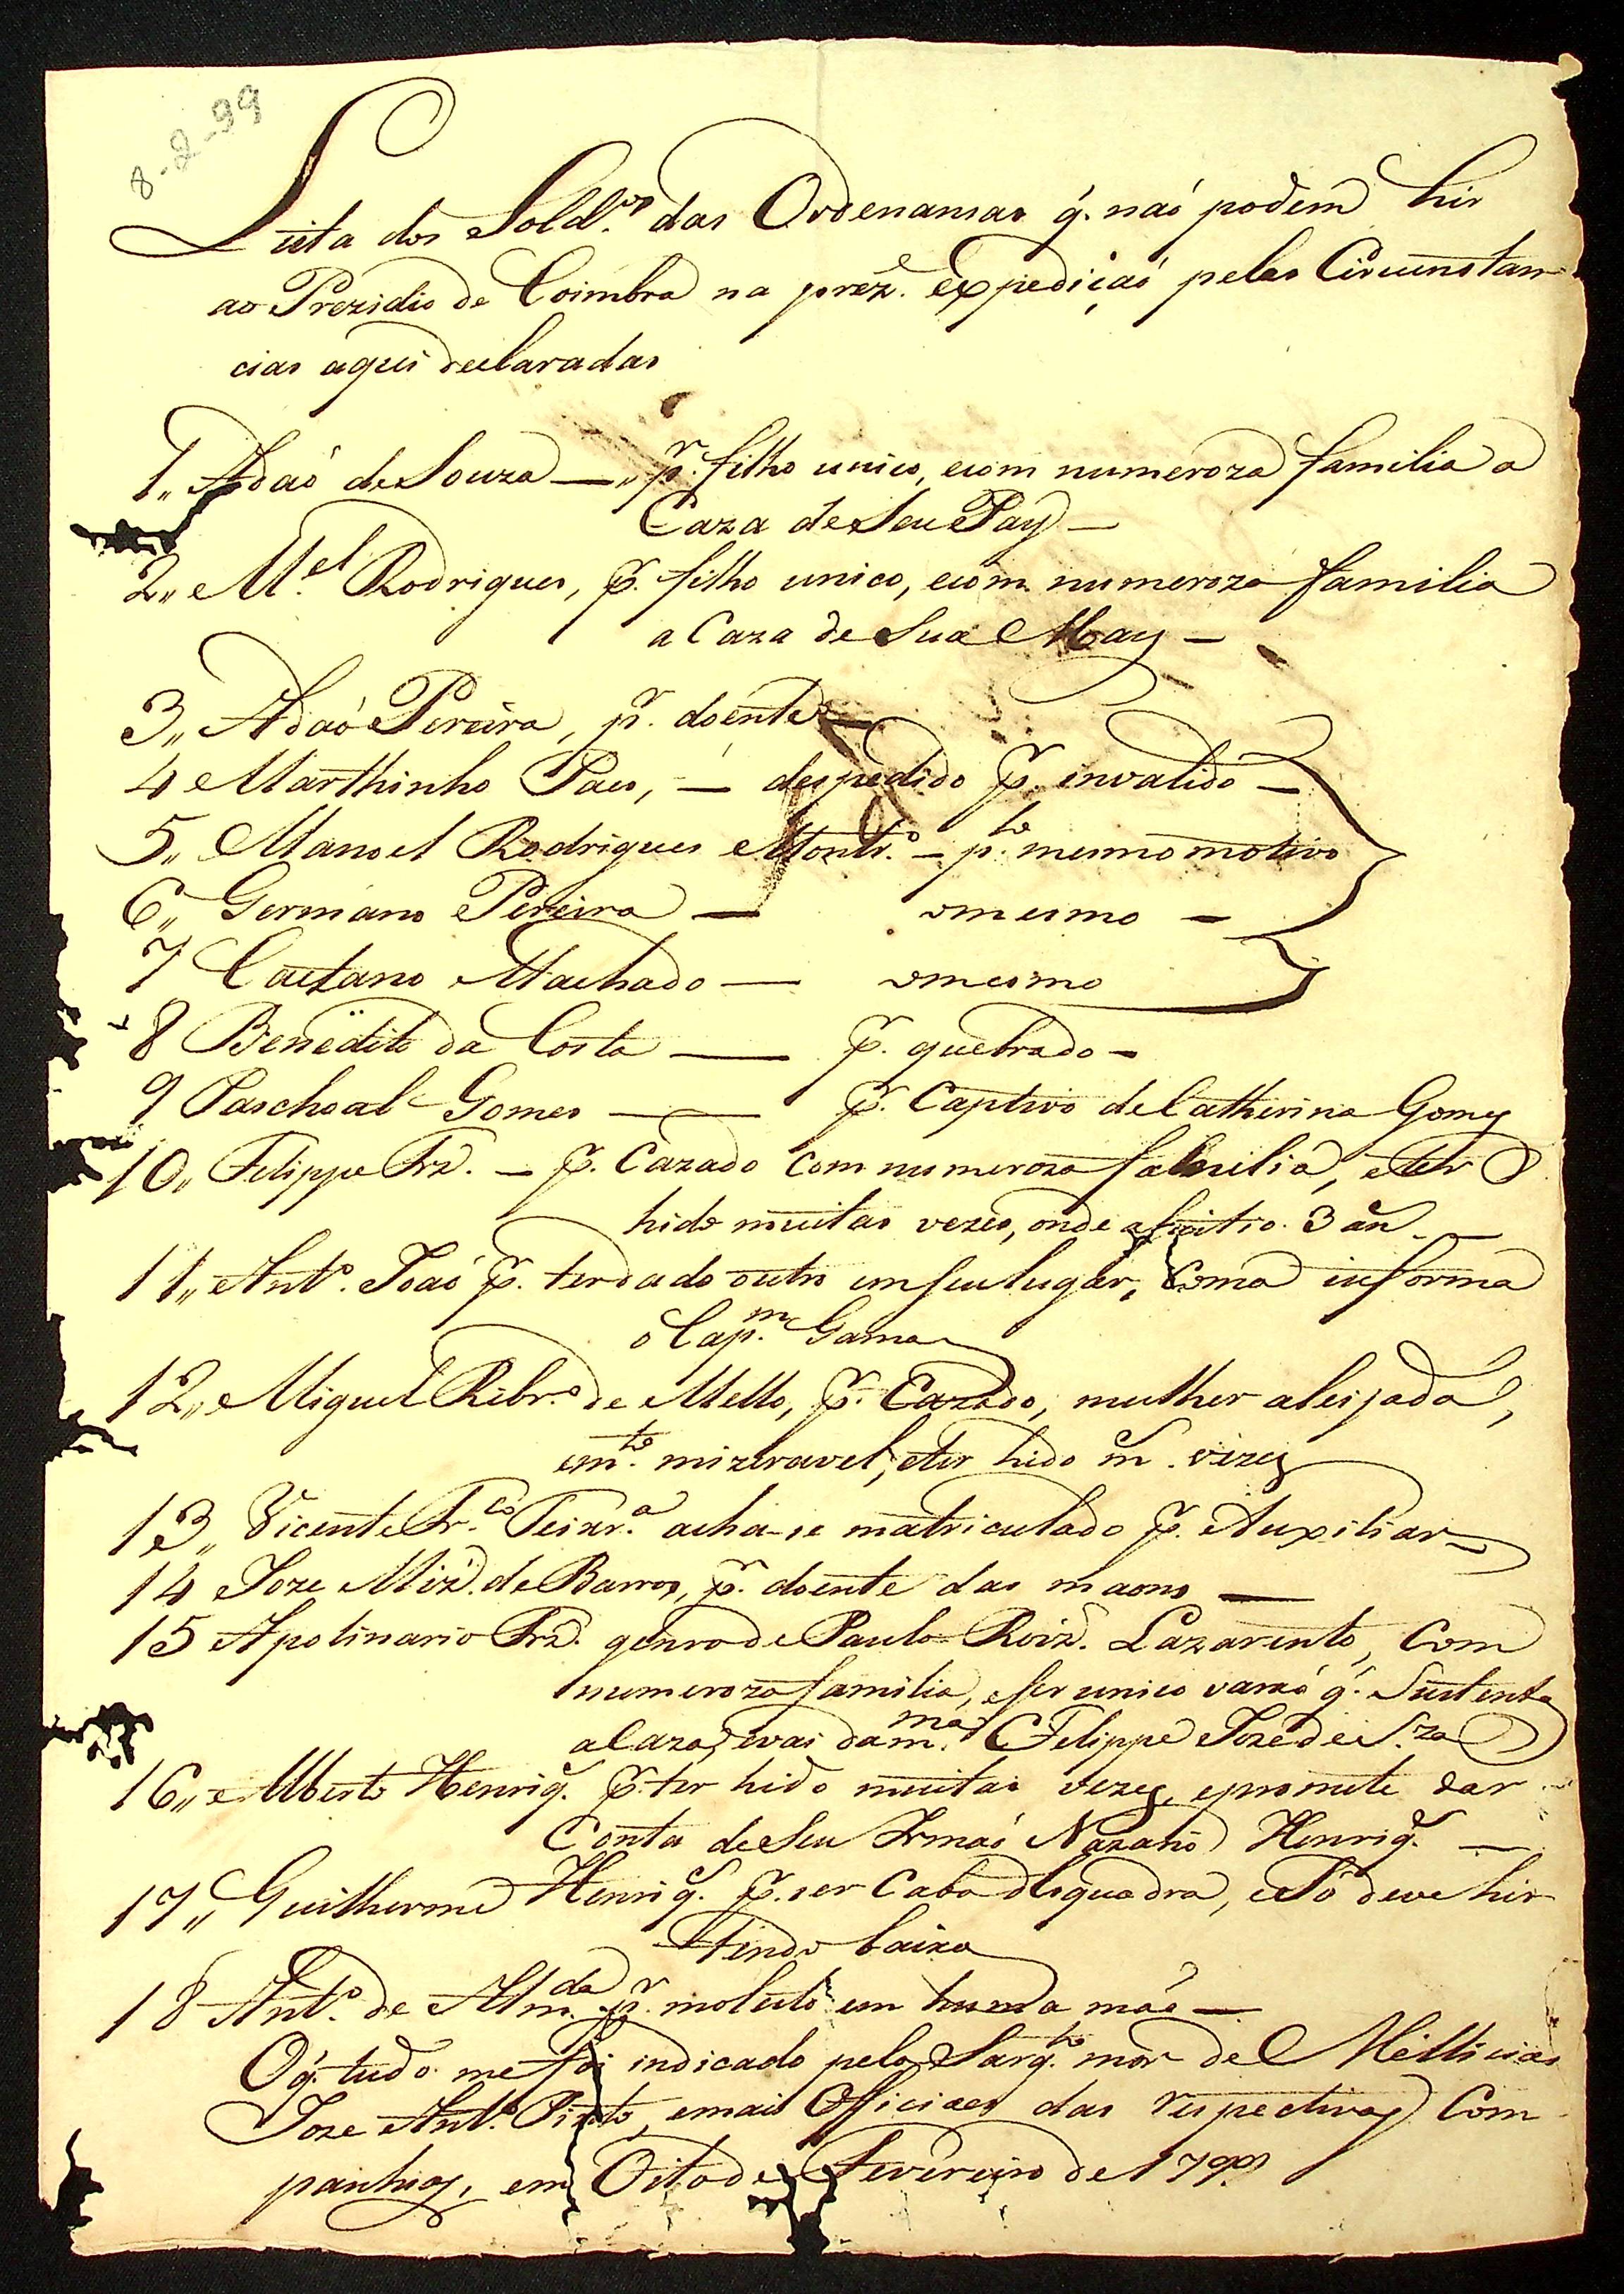 8-2-99
Lista dos Sold.os das Ordenansas q. naó podem hir
ao Prezidio de Coimbra na prez. expediçaó pelas Circunstan
cias aqui declaradas
1,, Adaó de Souza —,, p.r filho unico, ecom numeroza familia a
Caza de Seu Pay —
2,, M.el Rodrigues, p.r filho unico, ecom numeroza familia
a Caza de Sua May —
3,, Adaó Pereira, p.r doente —
4 Marthinho Paes, — despedido p.r invalido —
5,, Manoel Rodrigues Montr.o — p.lo mesmo motivo
6,, Germano Pereira — omesmo —
7 Caetano Machado — omesmo
8 Benedito da Costa — p.r quebrado —
9 Paschoal Gomes — p.r Captivo de Catherina Gomes
10,, Felippe Frz. — p.r Cazado Com numeroza familia, eter
hido muitas vezes, onde asistio 3 an.s —
11,, Ant.o Joaó p.r terdado outro emseulugar, Como informa
o Cap.m Gama
12,, Miguel Ribr.o de Mello, p.r Cazado, mulher aleijada,
em.to mizeravel, eter hido m.s vezes
13,, Vicente Fr.co Teixr.a acha-se matriculado p.r Auxiliar —
14 Joze Miz. de Barros, p.r doente das maons —
15 Apolinario Frz. genro de Paulo Roiz. Lazarento, Com
numeroza familia, eser unico varaó q. Sustenta
aCaza, evai dam.ma Felippe Joze de S.za
16,, Alberto Henriq.s p.r ter hido muitas vezes, epromete dar
Conta de Seu Irmaó Nazario Henriq.s —
17,, Guilherme Henriq.s p.r ser Cabo dEsquadra, eSó deve hir
tendo baixa
18 Ant.o de Alm.da p.r molesto em huma máo —
Oq. tudo me foi indicado pelo Sarg.to mór de Millicias
Joze Ant.o Pinto, emais Officiaes das respectivas Com
panhias, em Oito de Fevereiro de 1799